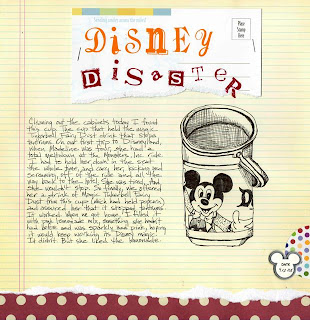 Sending smiles across the miles!
Place
Stamp
Here
DiSNEY
DiSASTER
Cleaning out the cabinets today I found
this cup. The cup that held the magic
Tinkerbell Fairy Dust drink that stops
tantrums. On our first trip to Disneyland,
when Madeline was four, she had a
total meltdown at the Monsters, Inc. ride.
I had to hold her down in the seat
the whole time, and carry her, kicking and
screaming, off of the ride and all the
way back to the hotel. She was tired. And
she wouldn't stop. So finally, we offered
her a drink of Magic Tinkerbell Fairy
Dust from this cup (which had held popcorn)
and assured her that it stopped tantrums.
It worked. When we got home I filled it
with pink lemonade mix, something she hadn't
had before and was sparkly and pink, hoping
it would keep working its Disney magic.
It didn't. But she liked the lemonade.
DATE